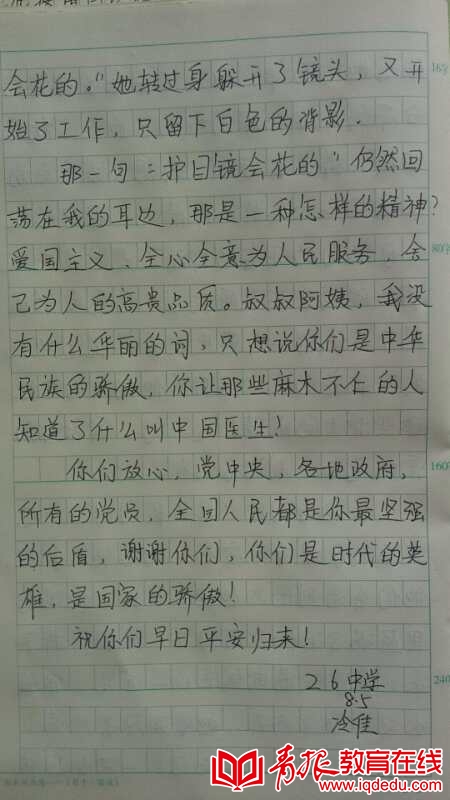 会花的。"她转过身躲开了镜头，又开
始了工作，只留下白色的背影.
那一句"护目镜会花的"仍然回
荡在我的耳边，那是一种怎样的精神?
爱国主义、全心全意为人民服务，舍
己为人的高贵品质。叔叔阿姨，我没
有什么华丽的词，只想说你们是中华
民族的骄傲，你让那些麻木不仁的人
知道了什么叫中国医生!
你们放心，党中央，各地政府，
所有的党员，全国人民都是你最坚强
的后盾，谢谢你们，你们是时代的英
雄，是国家的骄傲!
祝你们早日平安归来!
26中学
8.5
冷佳
160
240
青报教育在线
www.iqdedu.com